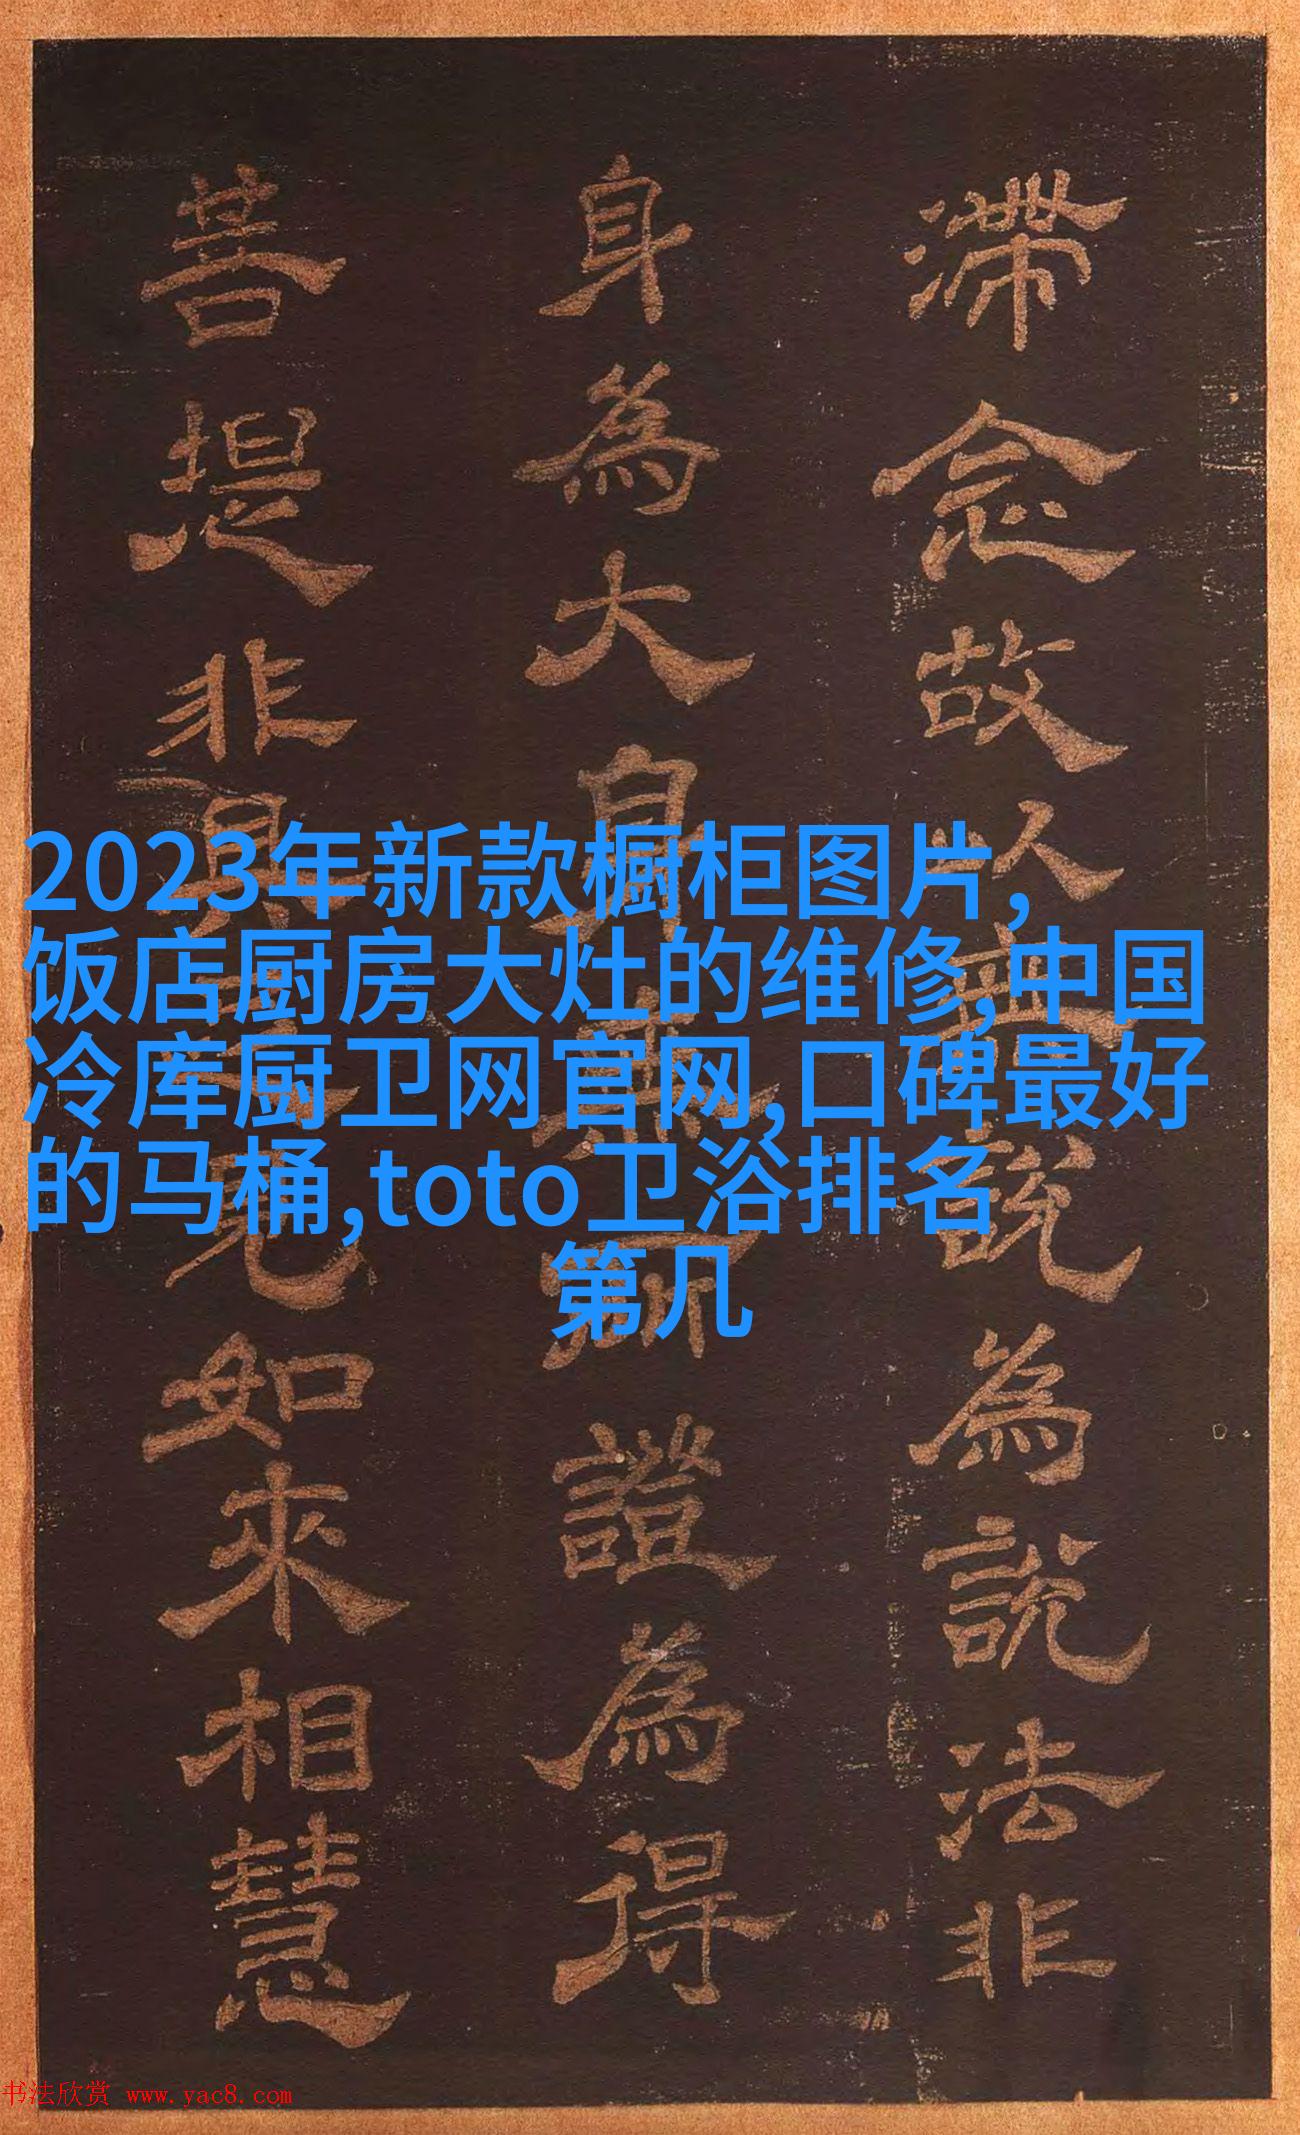 滯念故以無說為說法非
身為大身無證為得
菩提非具見如來相慧
2023年新款橱柜图片,
饭店厨房大灶的维修,中国
冷库厨卫网官网,口碑最好
的马桶,toto卫浴排名
第几
书法欣赏 www.yac8.com